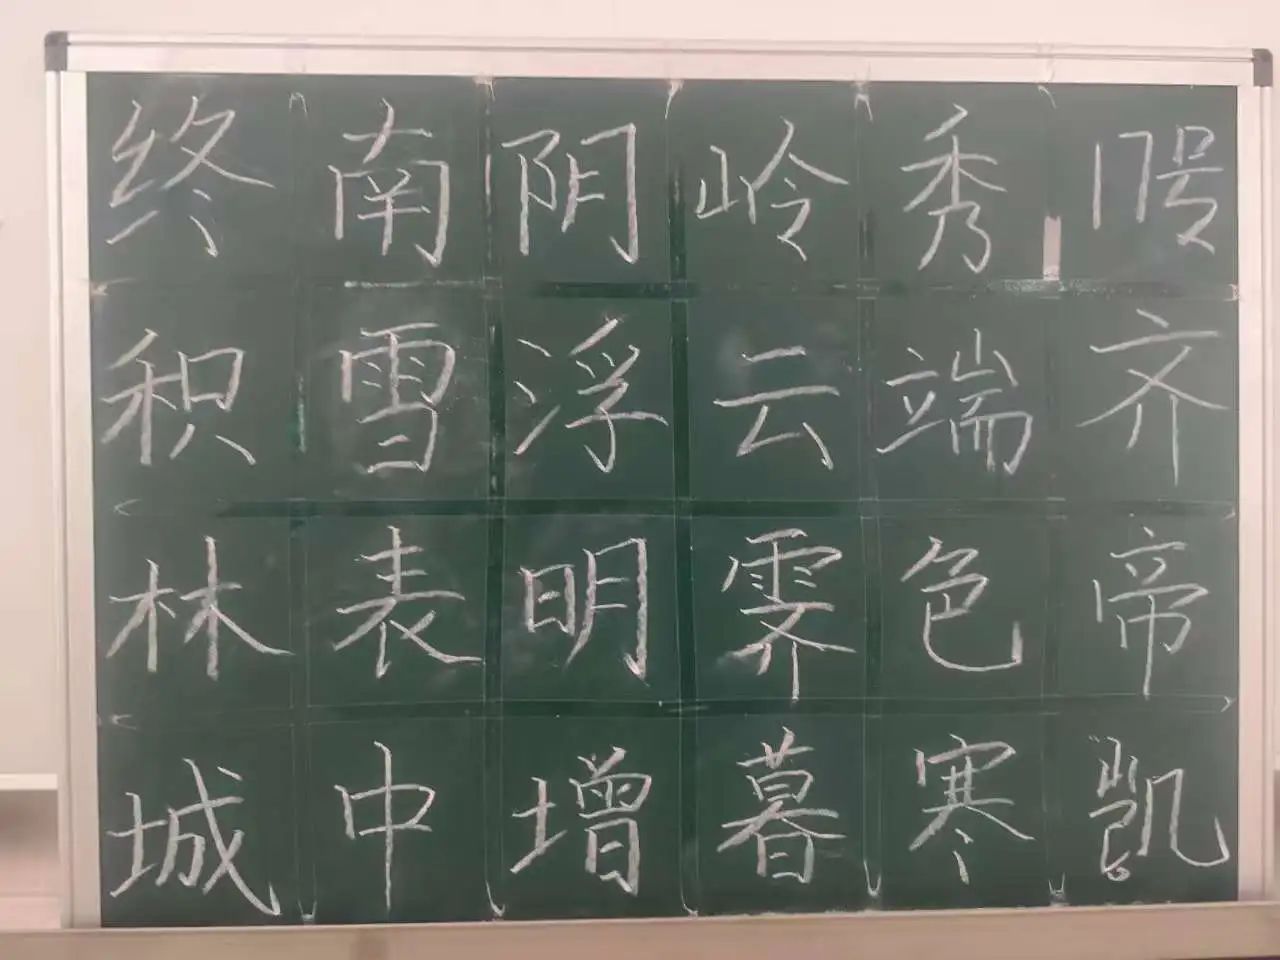 终南阴岭秀 17号
积雪浮云端 齐
林表明霁色 帝
城中增暮寒 凯